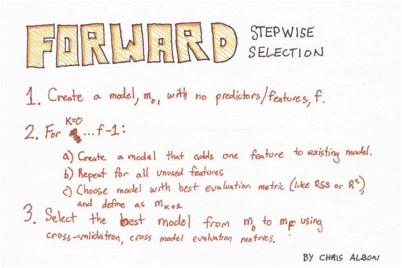 FORWARD STEPWISE
SELECTION
1. Create a model, m₀, with no predictors/features, f.
K=0
2. For ...f-1:
a) Create a model that adds one feature to existing model.
b) Repeat for all unused features
c) Choose model with best evaluation metric (like RSS or R²),
and define as mₖ₊₁
3. Select the best model from m₀ to mf using
cross-validation, cross model evaluation metrics.
BY CHRIS ALBON